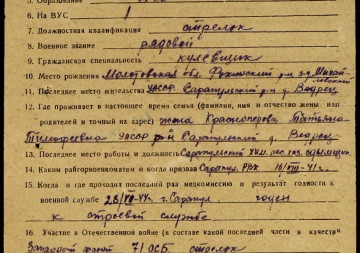 6. На ВУС 1
7. Должностная квалификация стрелок
8. Военное звание рядовой
9. Гражданская специальность
10. Место рождения Молотовская обл.
11. Последнее место жительства УАССР Сарапулский р-н д.
12. Где проживает в настоящее время семья (фамилия, имя и отчество жены или
родителей и точный их адрес) жена Красноперова Татьяна
Тимофеевна УАССР Сарапулский д.
13. Последнее место работы и должность Сарапулский
14. Каким райгорвоенкоматом и когда призван Сарапул. РВК 16/VIII-41 г.
15. Когда и где проходил последний раз медкомиссию и результат годности к
военной службе 28/VII-44 г. Сарапул годен
к строевой службе
16. Участие в Отечественной войне (в составе какой последней части в качестве
Западный фронт 71 ОСБ стрелок